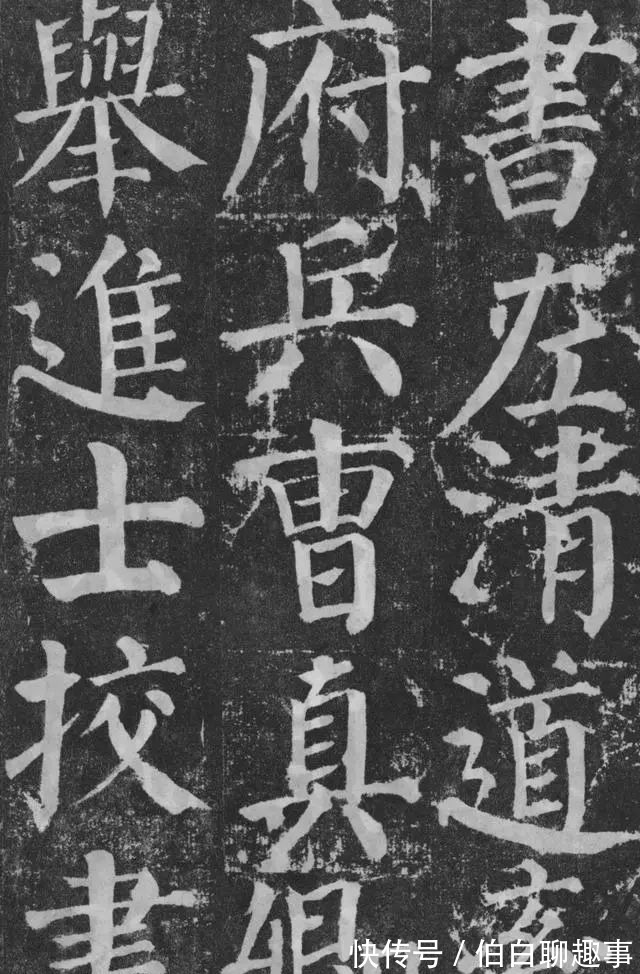 書左清道率
府兵曹真卿
舉進士挍書
快传号 / 伯白聊趣事